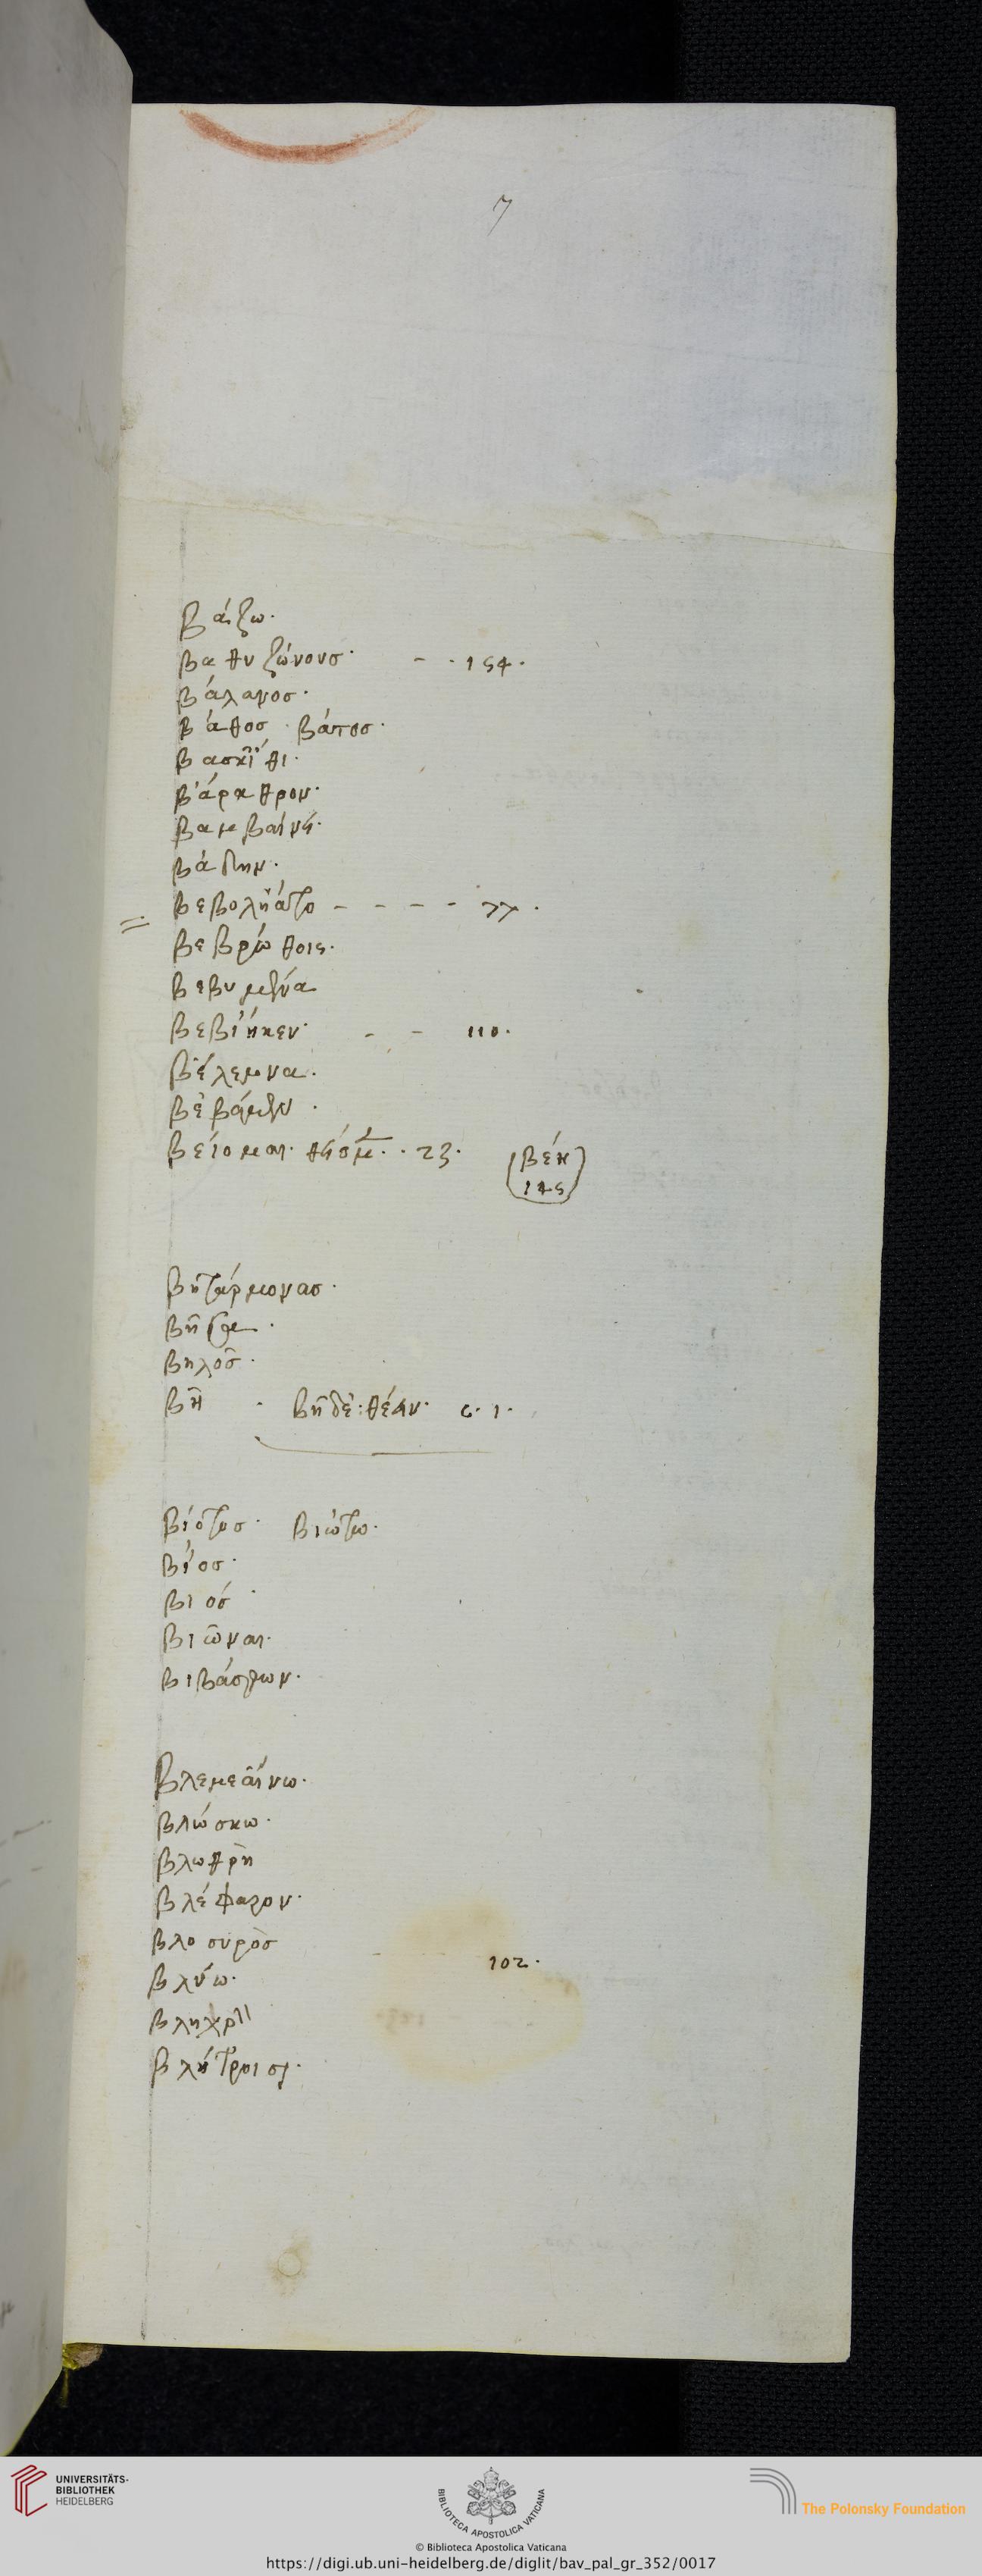 7
Βάζω·
Βαθυζώνουσ· - · 154·
Βάλανοσ·
Βάθοσ · Βάτοσ·
Βασκ ῖθι·
Βάραθρον·
Βαμβαίνει·
Βάδην·
Βεβολήατο - - - - 77·
Βεβρώθοις·
Βεβυμένα
Βεβίηκεν· - - 110·
Βέλεμνα·
Βεβάμεν·
Βείομαι· 23· (Βέη
145)
Βητάρμονασ·
Βῆσσα·
Βηλὸσ·
Βῆ · Βῆδὲ: θέειν· 6· 1·
Βίοτοσ· Βιώτω·
Βίοσ·
Βιόσ·
Βιῶναι·
Βιβάσθων·
Βλεμεαίνω·
Βλώσκω·
Βλωθρὴ
Βλέφαρον·
Βλοσυρὸσ 102·
Βλύω·
Βληχρ
Βλήτροισι·
UNIVERSITÄTS-
BIBLIOTHEK
HEIDELBERG
BIBLIOTECA APOSTOLICA VATICANA
The Polonsky Foundation
© Biblioteca Apostolica Vaticana
https://digi.ub.uni-heidelberg.de/diglit/bav_pal_gr_352/0017